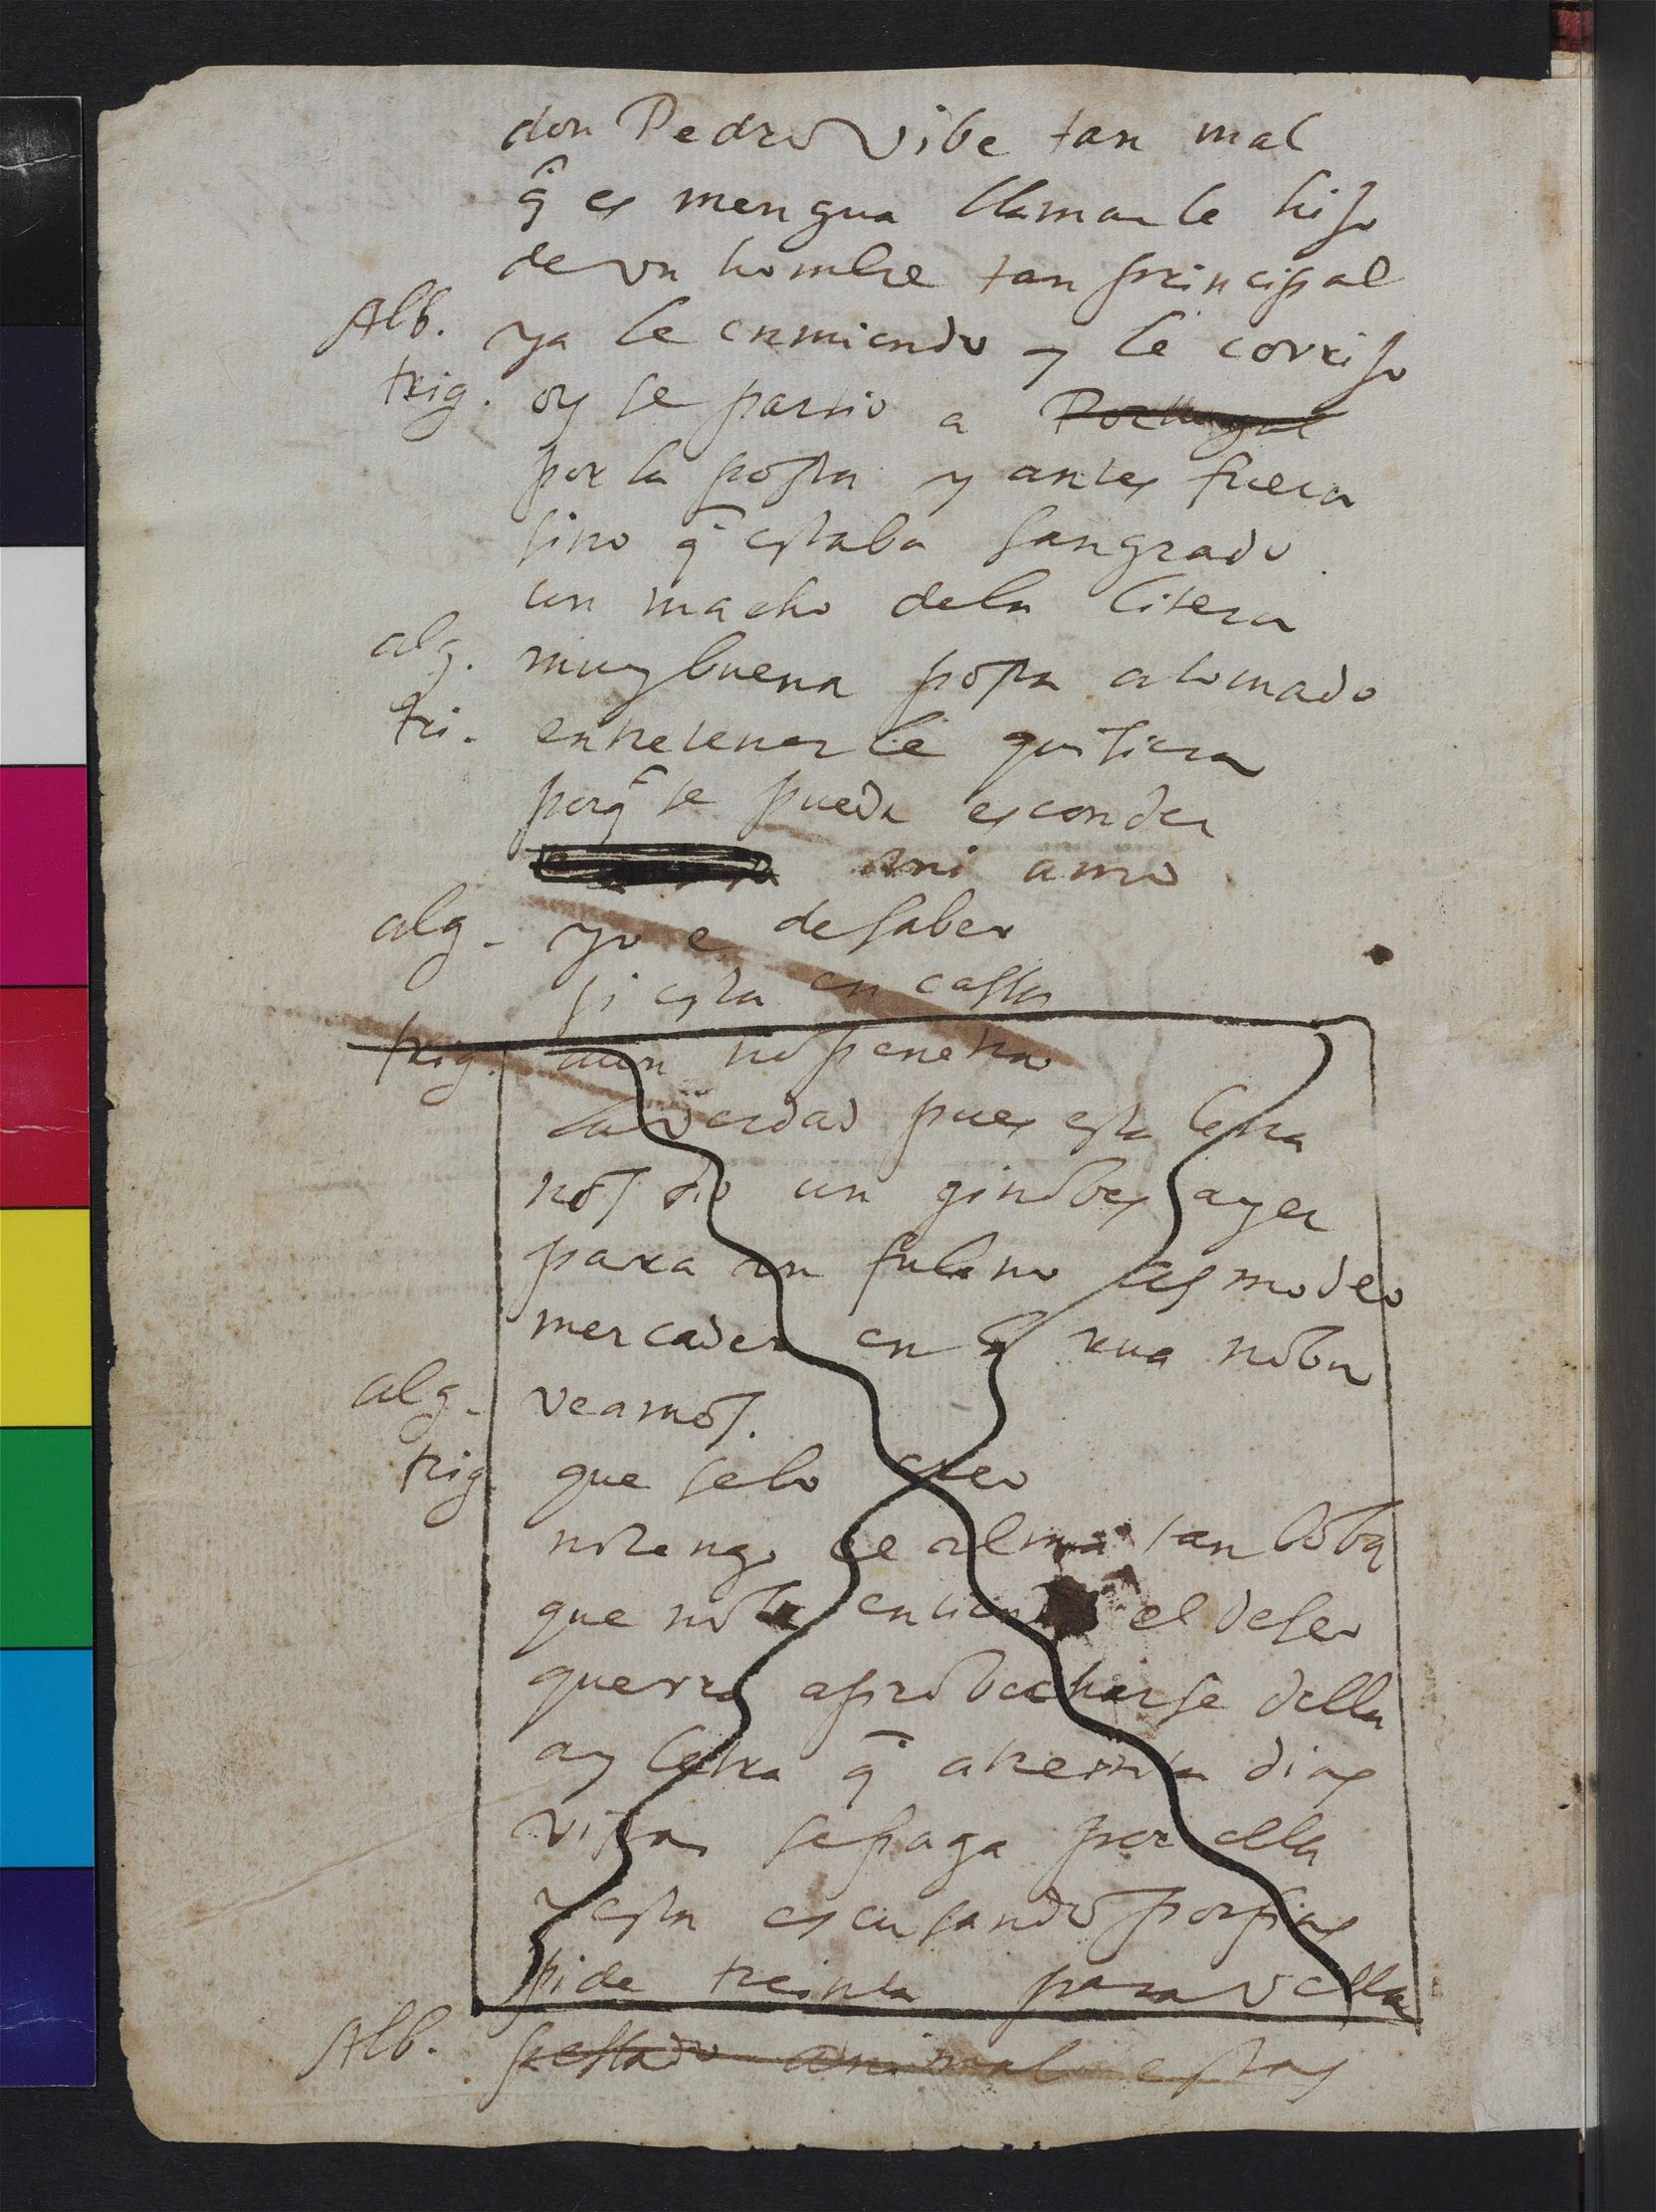 don Pedro vibe tan mal
q̃ es mengua llamarle hijo
de vn hombre tan principal
Alb. ya le enmiendo y le corrijo
trig. oy se partio a Portugal
por la posta y antes fuera
sino q̃ estaba sangrado
un macho dela litera
alg. muy buena posta a tomado
tri. entretenerle quisiera
porq̃ se pueda esconder
mi amo
alg. yo e de saber
si esta en cassa
trig. aun no penetra
la verdad pues esta letra
nos dio un ginobes ayer
para un fulano asmodeo
mercader en la rua noba
alg. veamos.
trig. que selo creo
no tengo el alma tan boba
que no le entiendo el deseo
querra aprobecharse della
ay letra q̃ a treinta dias
vista se paga por ella
y esta escusando porfias
pide treinta para vella
Alb. estado animal estas